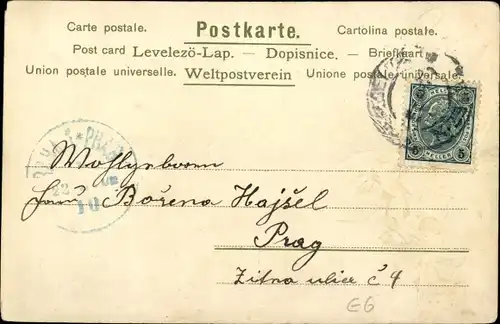 Carte postale. Postkarte. Cartolina postale.
Post card Levelezö-Lap. — Dopisnice. — Briefkaart
Union postale universelle. Weltpostverein Unione postale universale.
HELLER
5 HELLER 5
Wohlgeboren
Frau Božena Hajšel
Prag
Žitna ulice č 4
E6